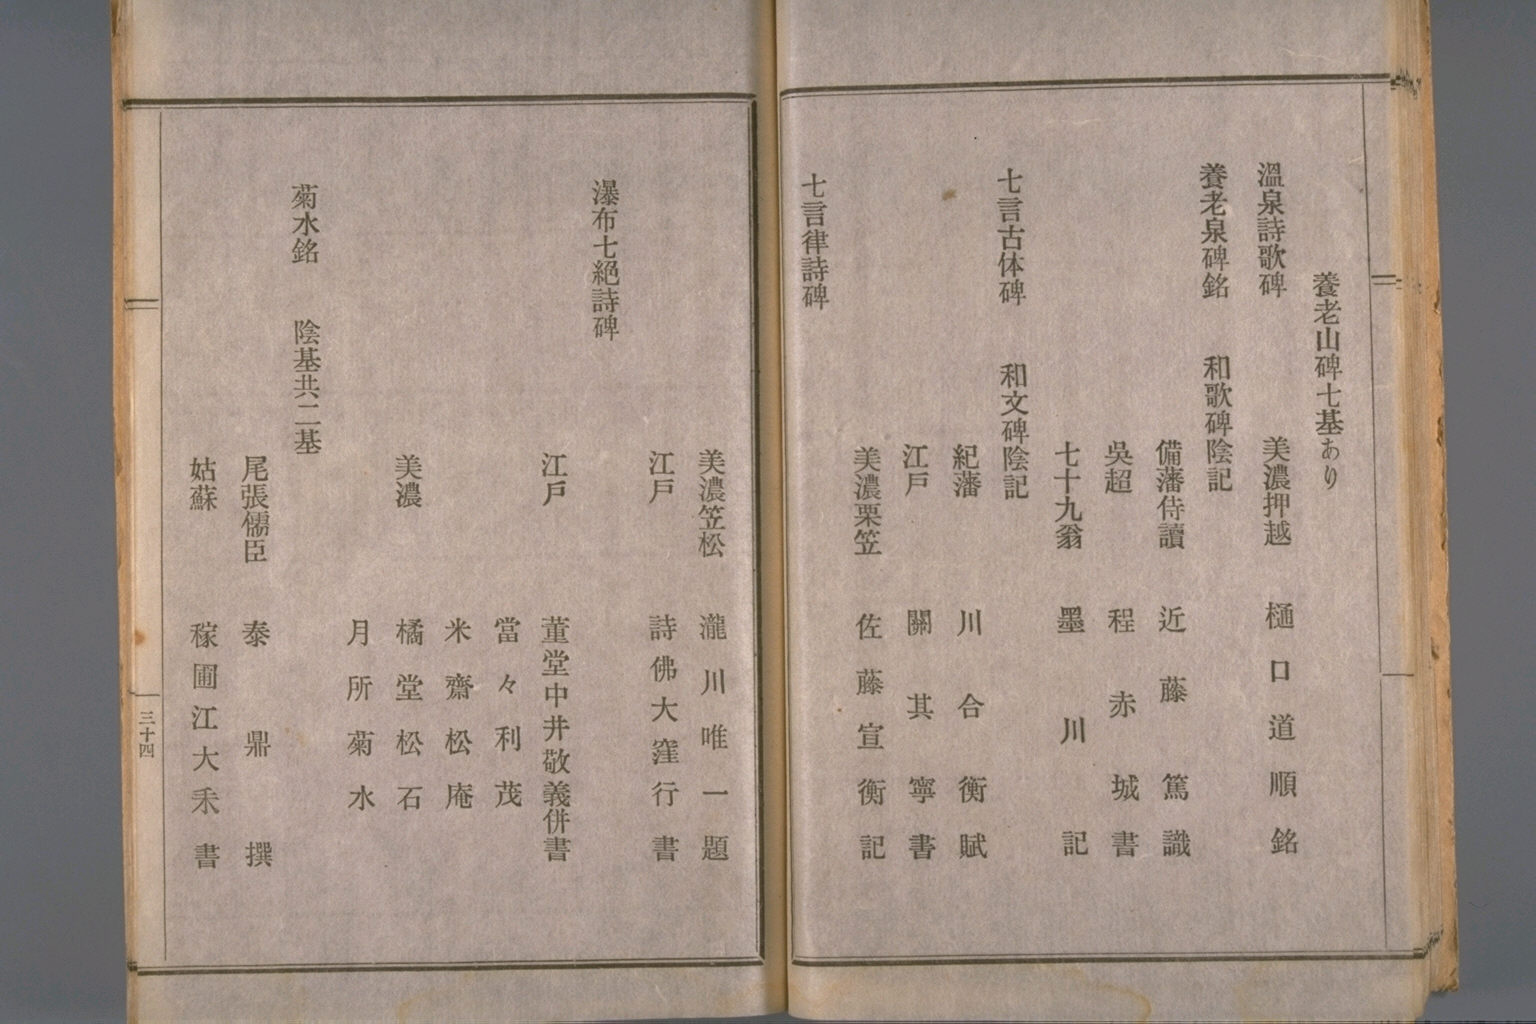 養老山碑七基あり
溫泉詩歌碑　美濃押越　樋口道順銘
養老泉碑銘　和歌碑陰記
備藩侍讀　近藤篤識
吳超　程赤城書
七十九翁　墨川記
七言古体碑　和文碑陰記
紀藩　川合衡賦
江戸　關其寧書
美濃栗笠　佐藤宣衡記
七言律詩碑
美濃笠松　瀧川唯一題
江戸　詩佛大窪行書
瀑布七絕詩碑
江戸　董堂中井敬義併書
當々利茂
米齋松庵
美濃　橘堂松石
月所菊水
菊水銘　陰基共二基
尾張儒臣　泰鼎撰
姑蘇　稼圃江大釆書
三十四